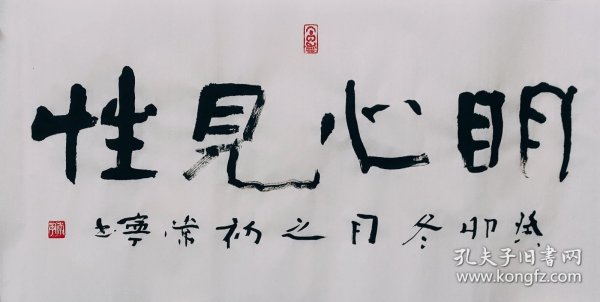 明心見性
癸卯冬月之初常寧书
孔夫子旧书网
www.kongfz.com